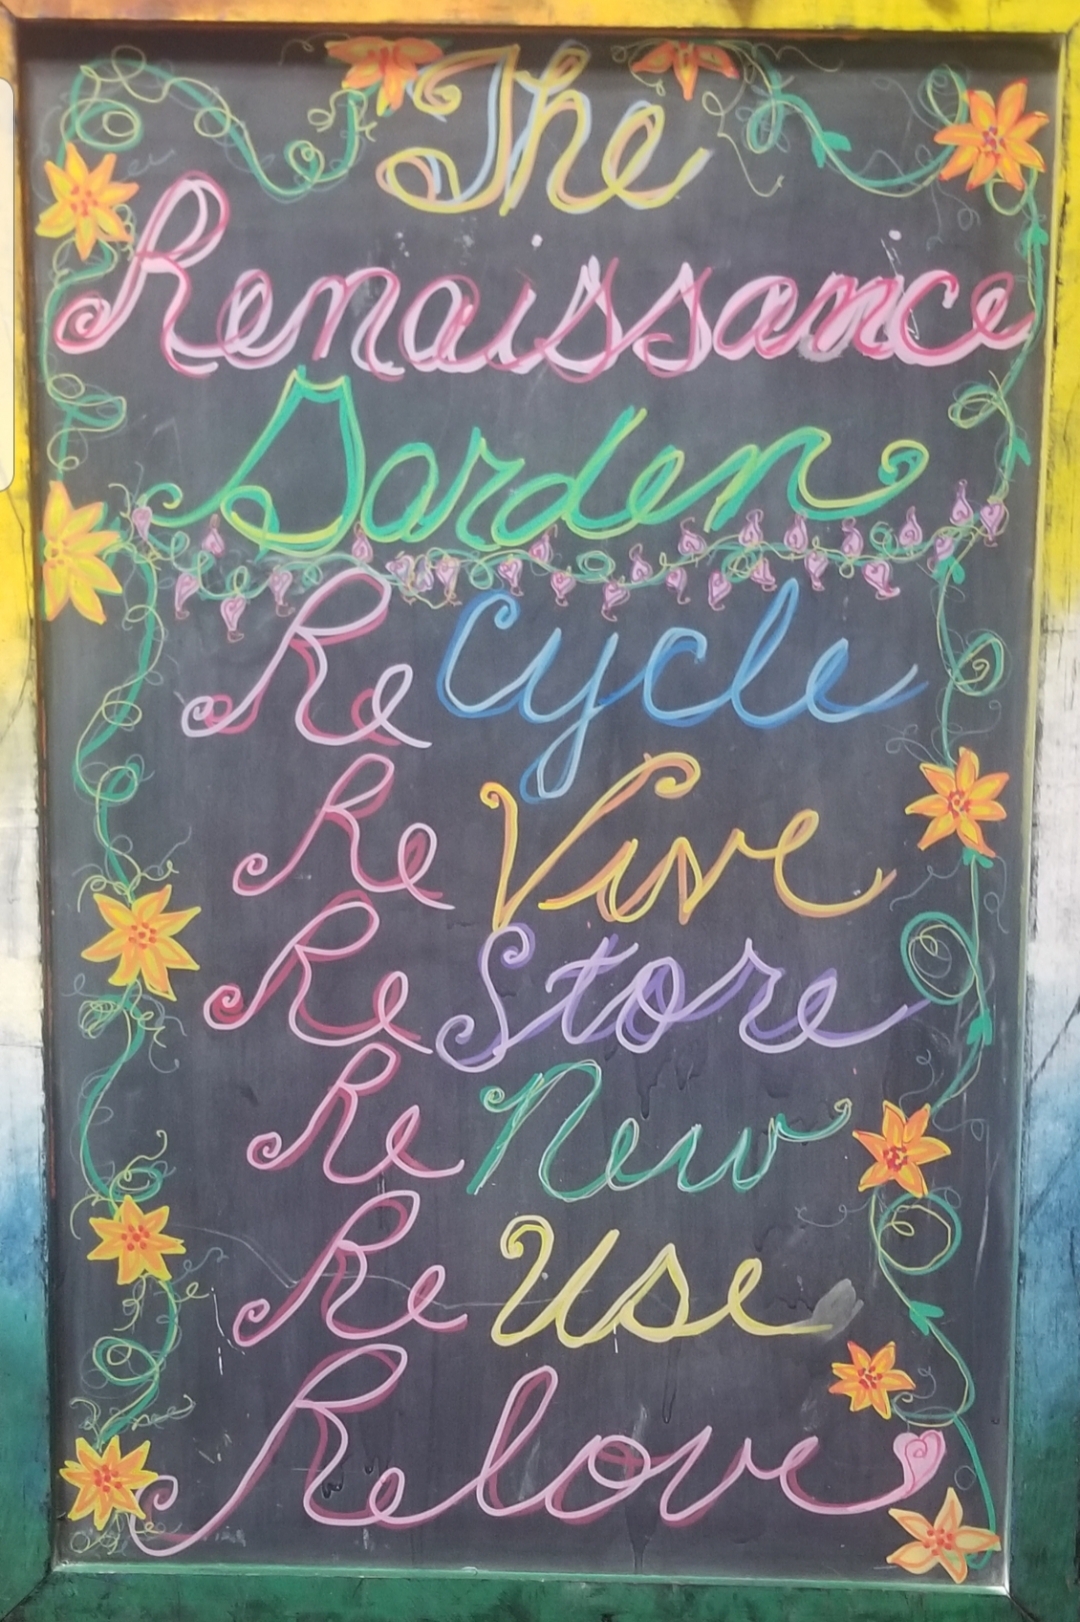 The
Renaissance
Garden
ReCycle
ReVive
ReStore
ReNew
ReUse
Relove